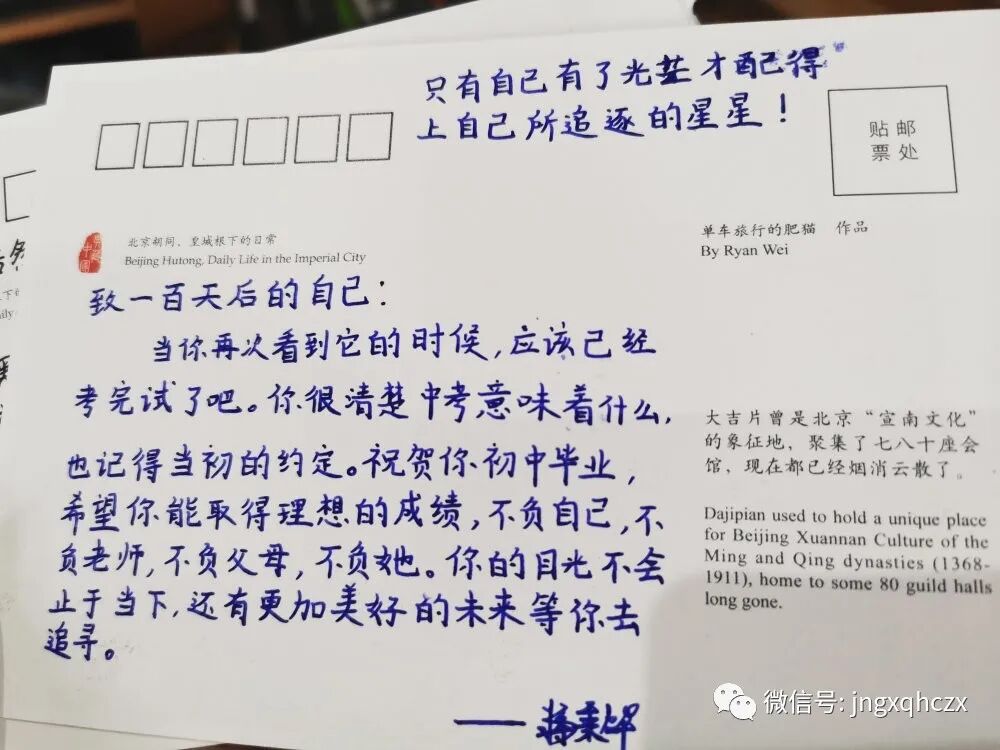 只有自己有了光芒才配得
上自己所追逐的星星！
贴 邮
票 处
北京胡同，皇城根下的日常
Beijing Hutong, Daily Life in the Imperial City
单车旅行的肥猫 作品
By Ryan Wei
致一百天后的自己：
当你再次看到它的时候，应该已经
考完试了吧。你很清楚中考意味着什么，
也记得当初的约定。祝贺你初中毕业，
希望你能取得理想的成绩，不负自己，不
负老师，不负父母，不负她。你的目光不会
止于当下，还有更加美好的未来等你去
追寻。
大吉片曾是北京“宣南文化”
的象征地，聚集了七八十座会
馆，现在都已经烟消云散了。
Dajipian used to hold a unique place
for Beijing Xuannan Culture of the
Ming and Qing dynasties (1368-
1911), home to some 80 guild halls
long gone.
微信号: jngxqhczx